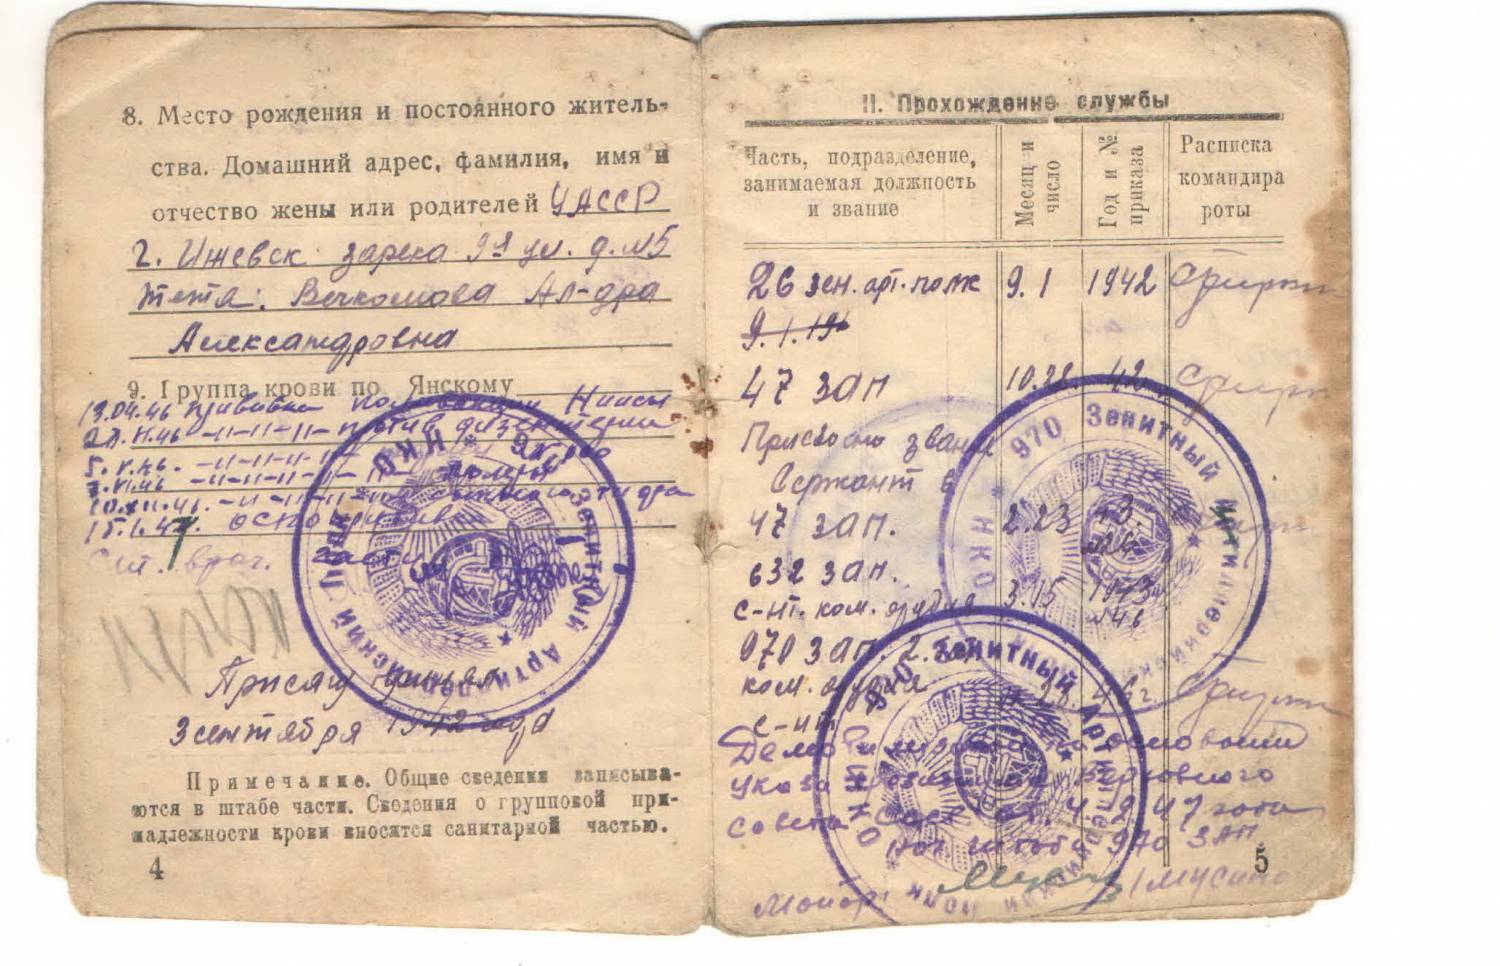 8. Место рождения и постоянного житель-
ства. Домашний адрес, фамилия, имя и
отчество жены или родителей УАССР
г. Ижевск зарека 9я ул. д. №5
тетя: Вечкомова Ал-дра
Александровна
9. Группа крови по Янскому
13.04.46 прививка
-II-II-II- против дизентерии
5.V.46. -II-II-II-
-II-II-II-
-II-II-II-
15.1.47.
Ст. врач.
Присягу принял
3 сентября 1942 года
Примечание. Общие сведения записыва-
ются в штабе части. Сведения о групповой при-
надлежности крови вносятся санитарной частью.
4
970 Зенитный Артиллерийский Полк * НКО *
II. Прохождение службы
Часть, подразделение,
занимаемая должность
и звание
Месяц и
число
Год и №
приказа
Расписка
командира
роты
26 зен. арт. полк 9.1 1942
9.1.19
47 зап 10.28 42
Присвоено звание
Сержант в
47 зап. 2.23 43.
632 зап.
с-нт. ком. орудия 3.15 1943
№46
970 зап. 2.
ком. орудия 46 г.
с-нт
Демобилизован на основании
указа президиума Верховного
Совета СССР от 4.2.47 года
Нач штаба 970 ЗАП
Майор /Мусин
970 Зенитный Артиллерийский * НКО *
970 Зенитный Артиллерийский Полк * НКО *
5